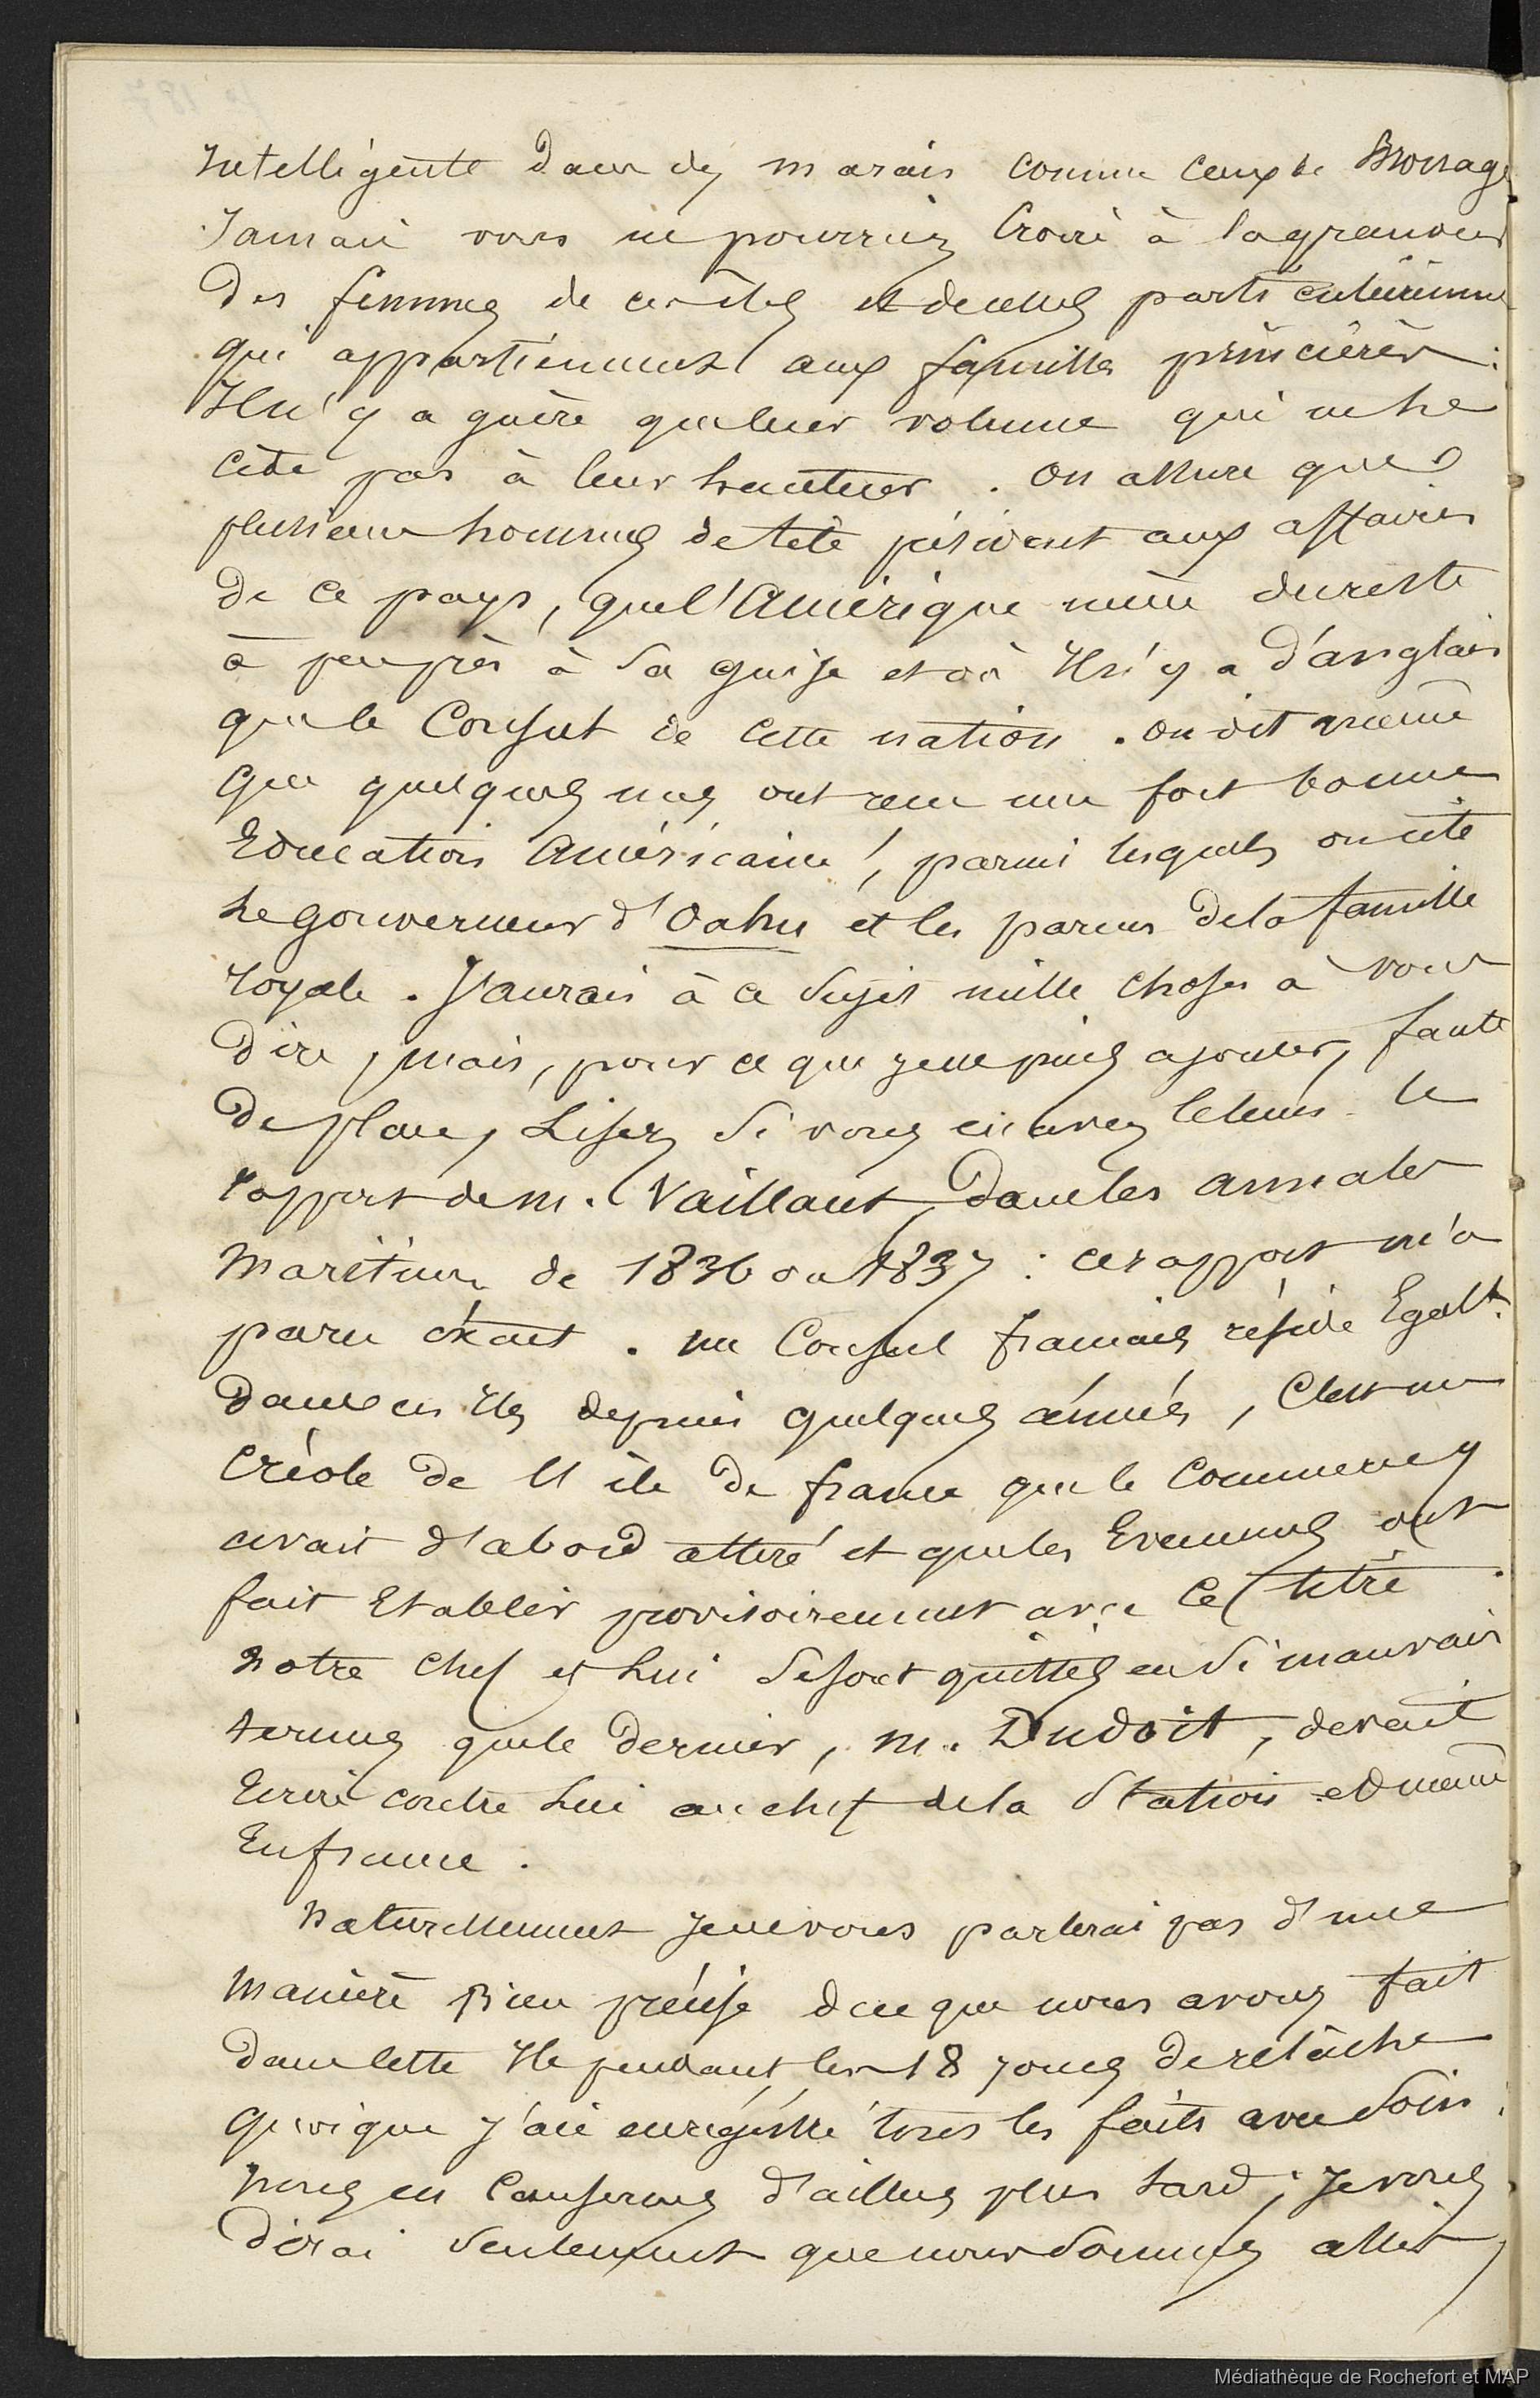 Intelligente dans des marais comme ceux de Brouage
Jamais vous ne pourriez Croire à la grandeur
Des femmes de ces îles et de celles particulièremt
qui appartiennent aux familles princières :
Il n'y a guère que leur volume qui ne le
Cède pas à leur hauteur . On assure que
plusieurs hommes de tête président aux affaires
De Ce pays, que l'Amérique mène du reste
à peu près à Sa guise et où Il n'y a d'anglais
que le Consul de Cette nation . on dit même
que quelques uns ont reçu une fort bonne
Education Américaine, parmi lesquels on cite
Le gouverneur d'Oahu et les parens de la famille
royale . J'aurais à ce Sujet mille choses à vous
Dire, mais, pour ce que je ne puis ajouter, faute
De place, Lisez Si vous en avez le tems le
rapport de M. Vaillant, Dans les annales
Maritimes de 1836 ou 1837 : ce rapport m'a
paru éxact . un Consul français réside Egalt.
Dans ces Iles depuis quelques années, C'est un
Créole de l'île De france que le Commerce y
avait d'abord attiré et que les Evenemens ont
fait Etablir provisoirement avec Ce titre .
Notre Chef et Lui Se sont quittés en Si mauvais
termes que le Dernier, M. Dudoit, devait
Ecrire contre Lui au chef de la Station et même
En france .
Naturellement Je ne vous parlerai pas d'une
Manière Bien précise de ce que nous avons fait
Dans Cette Ile pendant les 18 jours De relâche
quoique j'aie enrégistré tous les faits avec Soin :
Nous en Causerons d'ailleurs plus tard ; Je vous
Dirai Seulement que nous Sommes allés
Médiathèque de Rochefort et MAP